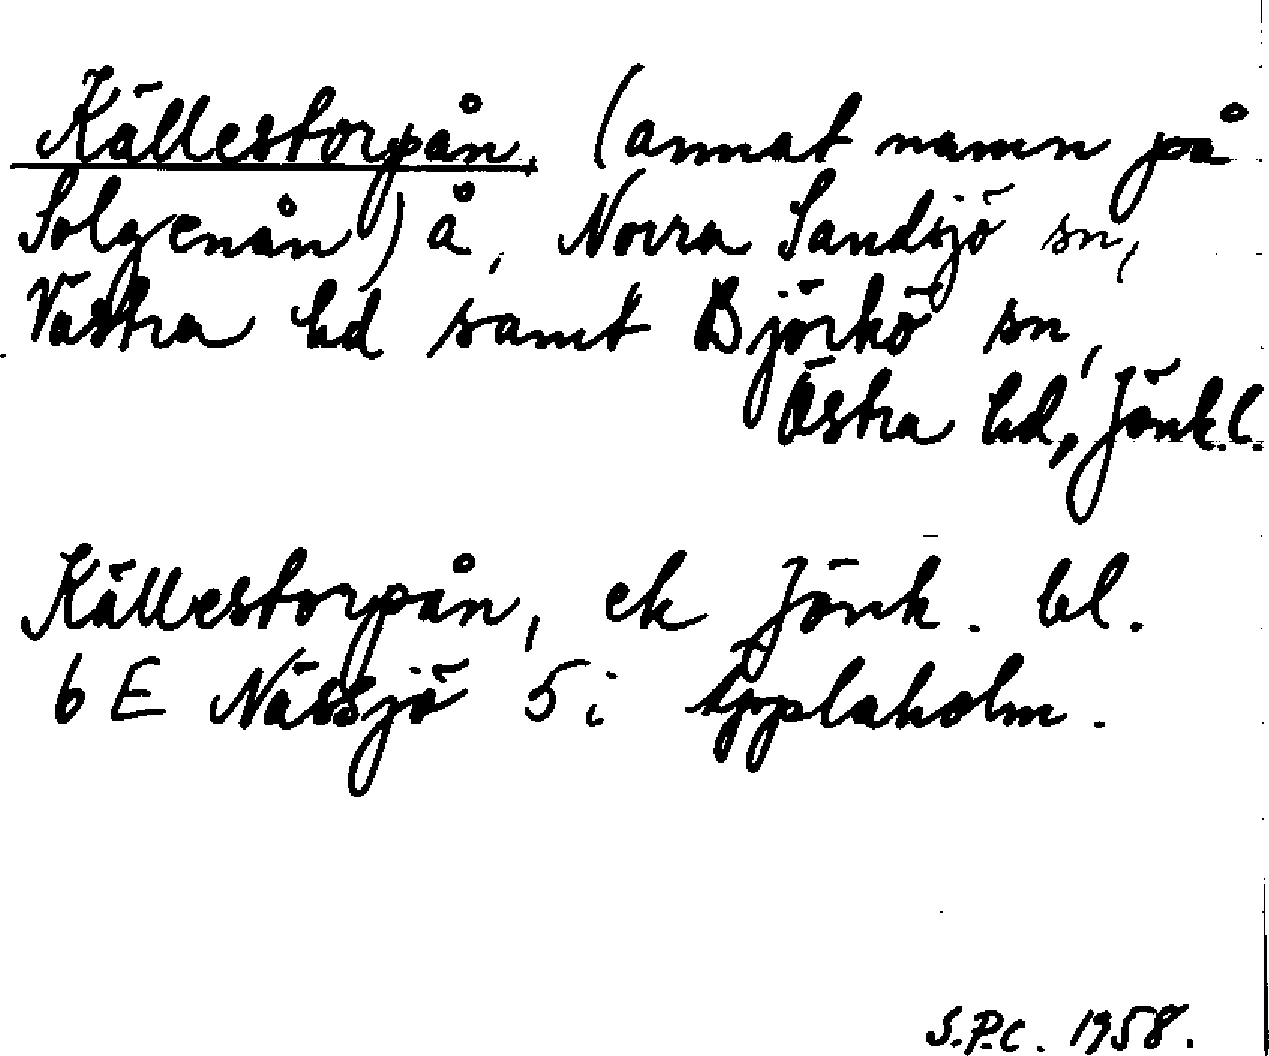 Källestorpån, (annat namn på
Solgenån) å, Norra Sandsjö sn,
Västra hd samt Björkö sn,
Östra hd, Jönk.l.
Källestorpån, ek Jönk. bl.
6 E Nässjö 5 i Äpplaholm.
S.P.C. 1958.